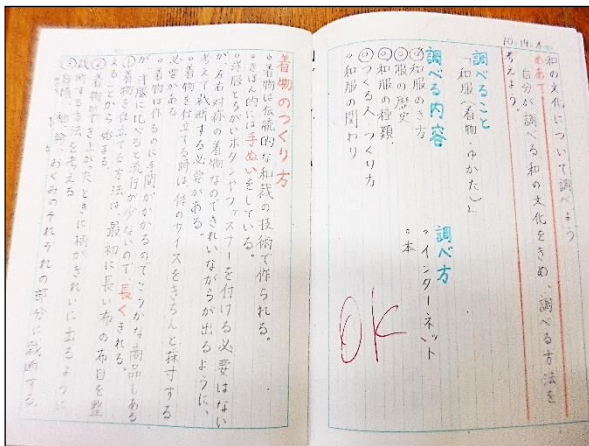 10.14.木
和の文化について調べよう
めあて 自分が調べる和の文化をきめ、調べる方法を
考えよう。
調べること
和服(着物・ゆかた)と
調べる内容
◎和服のき方
◎服の歴史
◎和服の種類
◎つくる人 つくり方
◎和服の関わり
調べ方
・インターネット
・本
OK
着物のつくり方
・着物は伝統的な和裁の技術で作られる。
・きほん的には手ぬいをしている。
・洋服とちがいボタンやファスナーを付ける必要はない
が、左右対称の着物なのできれいながらが出るように、
考えて裁断する必要がある。
・着物を仕立てる時は体のサイズをきちんと採寸する
必要がある
・着物は作るのに手間がかかるのでこうかな商品もある
が洋服に比べると流行が少ないので長くきれる。
①着物を仕立てる方法は、最初に長い布の布目を整
えることから始まる。
②着物ができ上がったときに柄がきれいに出るように
裁断する方法を考える
おくみのそれぞれの部分に裁断する